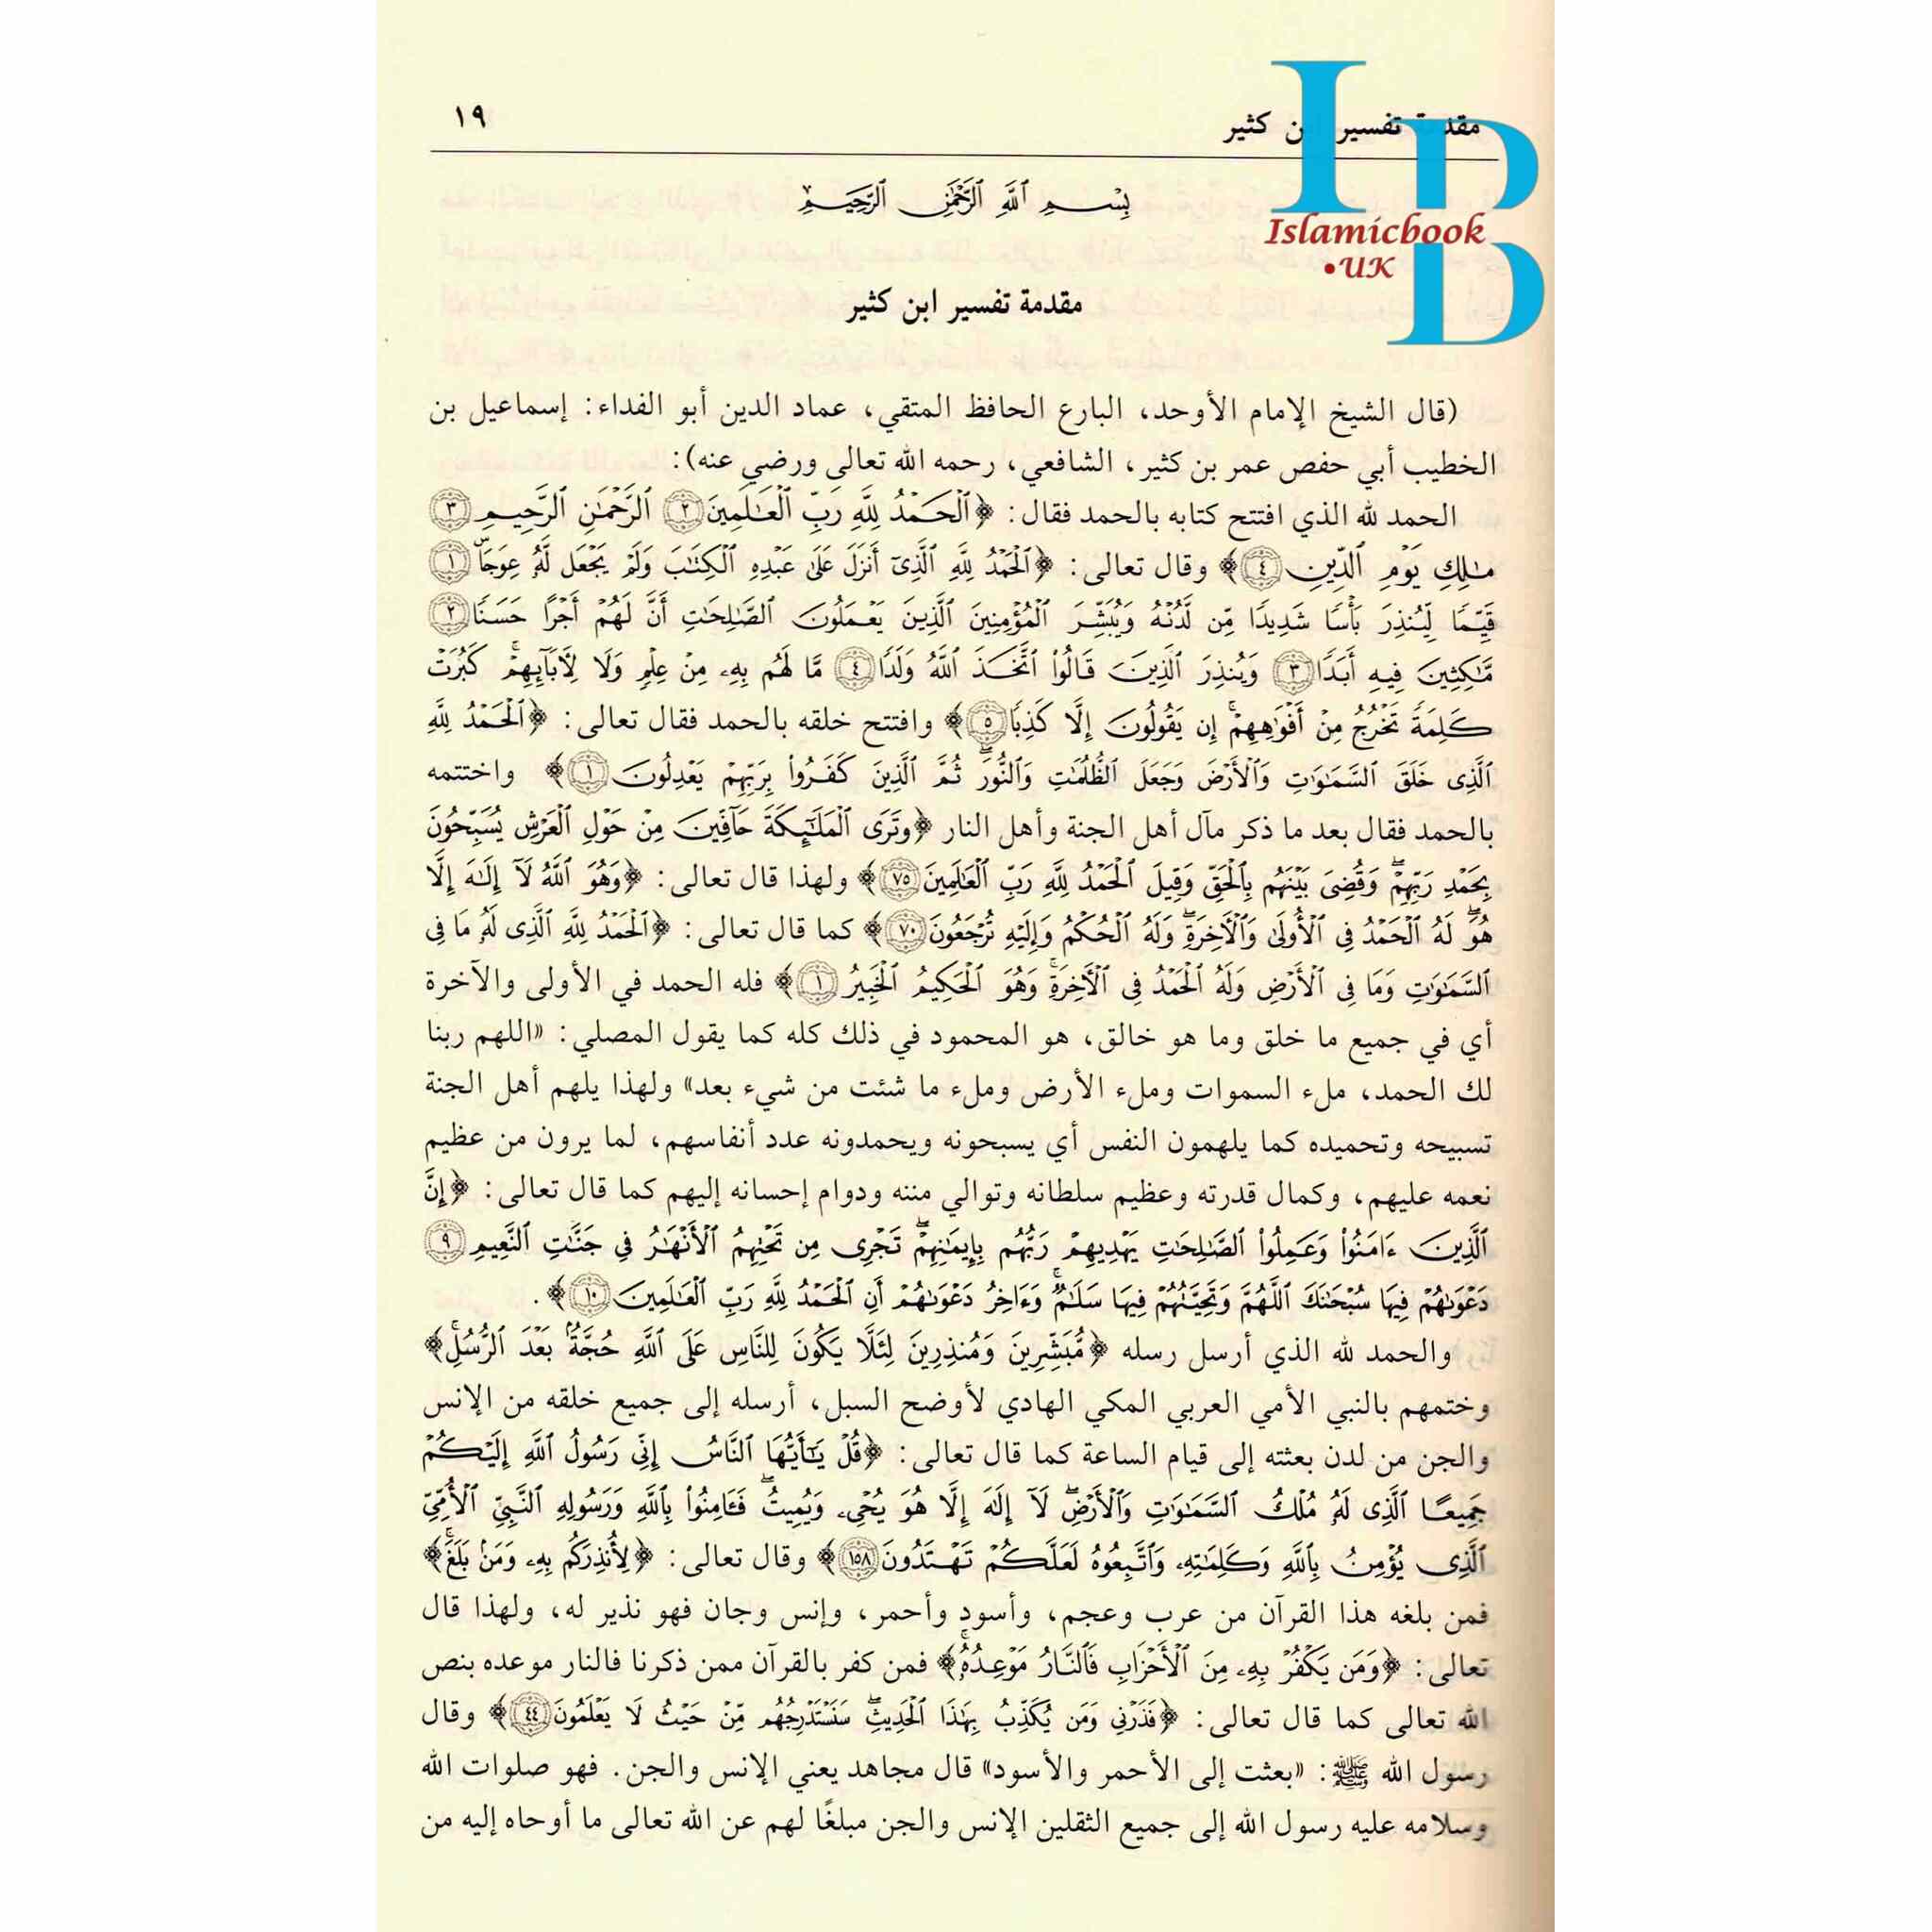 مقدمة تفسير ابن كثير
١٩
Islamicbook
.UK
بِسْمِ ٱللَّهِ ٱلرَّحْمَٰنِ ٱلرَّحِيمِ
مقدمة تفسير ابن كثير
(قال الشيخ الإمام الأوحد، البارع الحافظ المتقي، عماد الدين أبو الفداء: إسماعيل بن
الخطيب أبي حفص عمر بن كثير، الشافعي، رحمه الله تعالى ورضي عنه):
الحمد لله الذي افتتح كتابه بالحمد فقال: ﴿ٱلْحَمْدُ لِلَّهِ رَبِّ ٱلْعَٰلَمِينَ ٢ ٱلرَّحْمَٰنِ ٱلرَّحِيمِ ٣
مَٰلِكِ يَوْمِ ٱلدِّينِ ٤﴾ وقال تعالى: ﴿ٱلْحَمْدُ لِلَّهِ ٱلَّذِىٓ أَنزَلَ عَلَىٰ عَبْدِهِ ٱلْكِتَٰبَ وَلَمْ يَجْعَل لَّهُۥ عِوَجَاۜ ١
قَيِّمًا لِّيُنذِرَ بَأْسًا شَدِيدًا مِّن لَّدُنْهُ وَيُبَشِّرَ ٱلْمُؤْمِنِينَ ٱلَّذِينَ يَعْمَلُونَ ٱلصَّٰلِحَٰتِ أَنَّ لَهُمْ أَجْرًا حَسَنًا ٢
مَّٰكِثِينَ فِيهِ أَبَدًا ٣ وَيُنذِرَ ٱلَّذِينَ قَالُوا۟ ٱتَّخَذَ ٱللَّهُ وَلَدًا ٤ مَّا لَهُم بِهِۦ مِنْ عِلْمٍ وَلَا لِـَٔابَآئِهِمْۚ كَبُرَتْ
كَلِمَةً تَخْرُجُ مِنْ أَفْوَٰهِهِمْۚ إِن يَقُولُونَ إِلَّا كَذِبًا ٥﴾ وافتتح خلقه بالحمد فقال تعالى: ﴿ٱلْحَمْدُ لِلَّهِ
ٱلَّذِى خَلَقَ ٱلسَّمَٰوَٰتِ وَٱلْأَرْضَ وَجَعَلَ ٱلظُّلُمَٰتِ وَٱلنُّورَۖ ثُمَّ ٱلَّذِينَ كَفَرُوا۟ بِرَبِّهِمْ يَعْدِلُونَ ١﴾ واختتمه
بالحمد فقال بعد ما ذكر مآل أهل الجنة وأهل النار ﴿وَتَرَى ٱلْمَلَٰٓئِكَةَ حَآفِّينَ مِنْ حَوْلِ ٱلْعَرْشِ يُسَبِّحُونَ
بِحَمْدِ رَبِّهِمْۖ وَقُضِىَ بَيْنَهُم بِٱلْحَقِّ وَقِيلَ ٱلْحَمْدُ لِلَّهِ رَبِّ ٱلْعَٰلَمِينَ ٧٥﴾ ولهذا قال تعالى: ﴿وَهُوَ ٱللَّهُ لَآ إِلَٰهَ إِلَّا
هُوَۖ لَهُ ٱلْحَمْدُ فِى ٱلْأُولَىٰ وَٱلْـَٔاخِرَةِۖ وَلَهُ ٱلْحُكْمُ وَإِلَيْهِ تُرْجَعُونَ ٧٠﴾ كما قال تعالى: ﴿ٱلْحَمْدُ لِلَّهِ ٱلَّذِى لَهُۥ مَا فِى
ٱلسَّمَٰوَٰتِ وَمَا فِى ٱلْأَرْضِ وَلَهُ ٱلْحَمْدُ فِى ٱلْـَٔاخِرَةِۚ وَهُوَ ٱلْحَكِيمُ ٱلْخَبِيرُ ١﴾ فله الحمد في الأولى والآخرة
أي في جميع ما خلق وما هو خالق، هو المحمود في ذلك كله كما يقول المصلي: «اللهم ربنا
لك الحمد، ملء السموات وملء الأرض وملء ما شئت من شيء بعد» ولهذا يلهم أهل الجنة
تسبيحه وتحميده كما يلهمون النفس أي يسبحونه ويحمدونه عدد أنفاسهم، لما يرون من عظيم
نعمه عليهم، وكمال قدرته وعظيم سلطانه وتوالي مننه ودوام إحسانه إليهم كما قال تعالى: ﴿إِنَّ
ٱلَّذِينَ ءَامَنُوا۟ وَعَمِلُوا۟ ٱلصَّٰلِحَٰتِ يَهْدِيهِمْ رَبُّهُم بِإِيمَٰنِهِمْۖ تَجْرِى مِن تَحْتِهِمُ ٱلْأَنْهَٰرُ فِى جَنَّٰتِ ٱلنَّعِيمِ ٩
دَعْوَىٰهُمْ فِيهَا سُبْحَٰنَكَ ٱللَّهُمَّ وَتَحِيَّتُهُمْ فِيهَا سَلَٰمٌۚ وَءَاخِرُ دَعْوَىٰهُمْ أَنِ ٱلْحَمْدُ لِلَّهِ رَبِّ ٱلْعَٰلَمِينَ ١٠﴾.
والحمد لله الذي أرسل رسله ﴿مُّبَشِّرِينَ وَمُنذِرِينَ لِئَلَّا يَكُونَ لِلنَّاسِ عَلَى ٱللَّهِ حُجَّةٌۢ بَعْدَ ٱلرُّسُلِۚ﴾
وختمهم بالنبي الأمي العربي المكي الهادي لأوضح السبل، أرسله إلى جميع خلقه من الإنس
والجن من لدن بعثته إلى قيام الساعة كما قال تعالى: ﴿قُلْ يَٰٓأَيُّهَا ٱلنَّاسُ إِنِّى رَسُولُ ٱللَّهِ إِلَيْكُمْ
جَمِيعًا ٱلَّذِى لَهُۥ مُلْكُ ٱلسَّمَٰوَٰتِ وَٱلْأَرْضِۖ لَآ إِلَٰهَ إِلَّا هُوَ يُحْىِۦ وَيُمِيتُۖ فَـَٔامِنُوا۟ بِٱللَّهِ وَرَسُولِهِ ٱلنَّبِىِّ ٱلْأُمِّىِّ
ٱلَّذِى يُؤْمِنُ بِٱللَّهِ وَكَلِمَٰتِهِۦ وَٱتَّبِعُوهُ لَعَلَّكُمْ تَهْتَدُونَ ١٥٨﴾ وقال تعالى: ﴿لِأُنذِرَكُم بِهِۦ وَمَنۢ بَلَغَۚ﴾
فمن بلغه هذا القرآن من عرب وعجم، وأسود وأحمر، وإنس وجان فهو نذير له، ولهذا قال
تعالى: ﴿وَمَن يَكْفُرْ بِهِۦ مِنَ ٱلْأَحْزَابِ فَٱلنَّارُ مَوْعِدُهُۥۚ﴾ فمن كفر بالقرآن ممن ذكرنا فالنار موعده بنص
الله تعالى كما قال تعالى: ﴿فَذَرْنِى وَمَن يُكَذِّبُ بِهَٰذَا ٱلْحَدِيثِۖ سَنَسْتَدْرِجُهُم مِّنْ حَيْثُ لَا يَعْلَمُونَ ٤٤﴾ وقال
رسول الله ﷺ: «بعثت إلى الأحمر والأسود» قال مجاهد يعني الإنس والجن. فهو صلوات الله
وسلامه عليه رسول الله إلى جميع الثقلين الإنس والجن مبلغًا لهم عن الله تعالى ما أوحاه إليه من